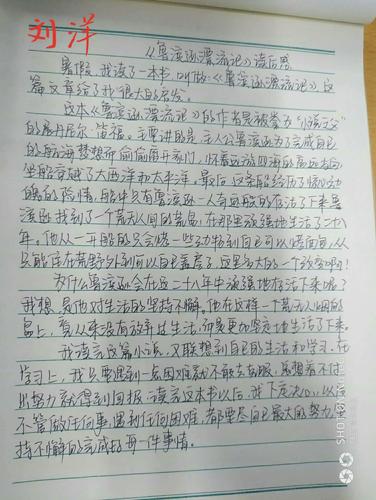 刘洋
《鲁滨逊漂流记》读后感
暑假,我读了一本书,叫做《鲁滨逊漂流记》这
篇文章给了我很大的启发。
这本《鲁滨逊漂流记》的作者是被拳为"小说之父"
的展丹尼尔·笛福。主要讲的是:主人公鲁滨逊为了完成自己
的航海梦想而偷偷离开家门,怀着远游四海的高远志向
坐船穿越了大西洋和太平洋。最后,这条船经历了惊心动
魄的险情,船中只有鲁滨逊一人奇迹般的存活了下来鲁
滨逊找到了一个荒无人间的荒岛,在那里顽强地生活了二十八
年。他从一开始的只会烧一些动物到自己可以烤面包,从
只能住在荒野外到可以自己盖房子,这是多大的一个改变啊!
为什么鲁滨逊会在这二十八年中顽强地存活下来呢?
我想是他对生活的坚持不懈。他在这样一个荒无人烟的
岛上,看从来没有放弃过生活,而是更加坚定地生活了下来。
我读完这篇小说,又联想到自己的生活和学习。在
学习上,我只要遇到一点困难就不敢去克服,总想着不付
出努力就得到回报。读完这本书以后,我下定决心:以后
不管做任何事,遇到任何困难,都要尽自己最大的努力坚
持不懈的完成好每一件事情。